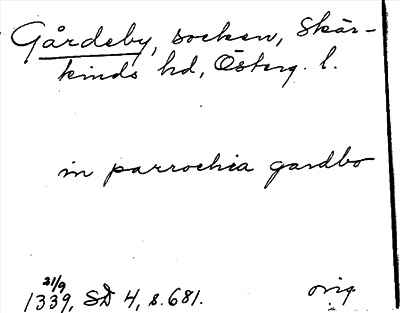 Gårdeby, socken, Skär-
kinds hd, Österg. l.
in parrochia gardbo
21/9
1339, SD 4, s. 681. orig